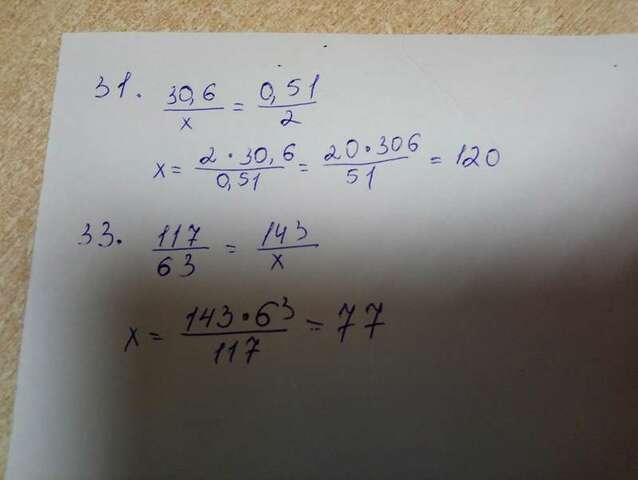 31. 30,6/x = 0,51/2
x = 2·30,6/0,51 = 20·306/51 = 120
33. 117/63 = 143/x
x = 143·63/117 = 77